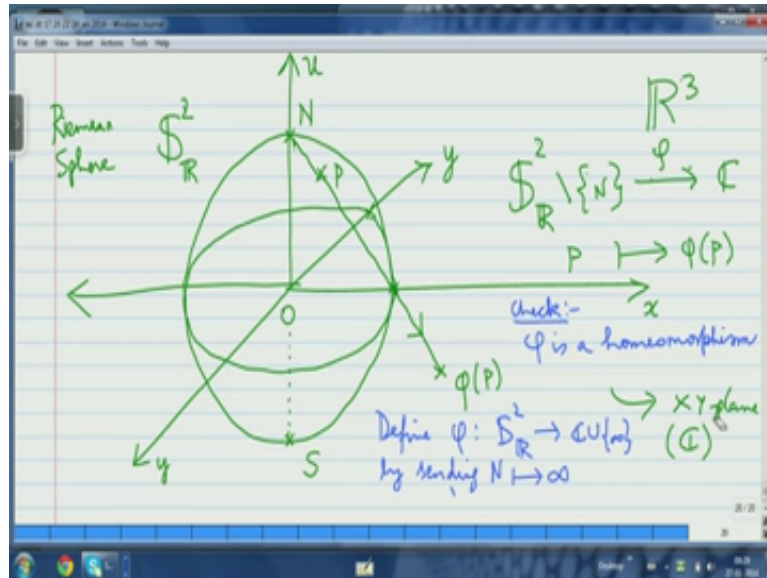 File Edit View Insert Actions Tools Help
u
N
Riemann
Sphere
𝕊²_ℝ
P
y
ℝ³
𝕊²_ℝ \ {N} —φ→ ℂ
P ⟼ φ(P)
x
O
check:-
φ is a homeomorphism
φ(P)
→ XY-plane
(ℂ)
Define φ: 𝕊²_ℝ → ℂ∪{∞}
by sending N ⟼ ∞
y
S
20 / 20
20
Desktop